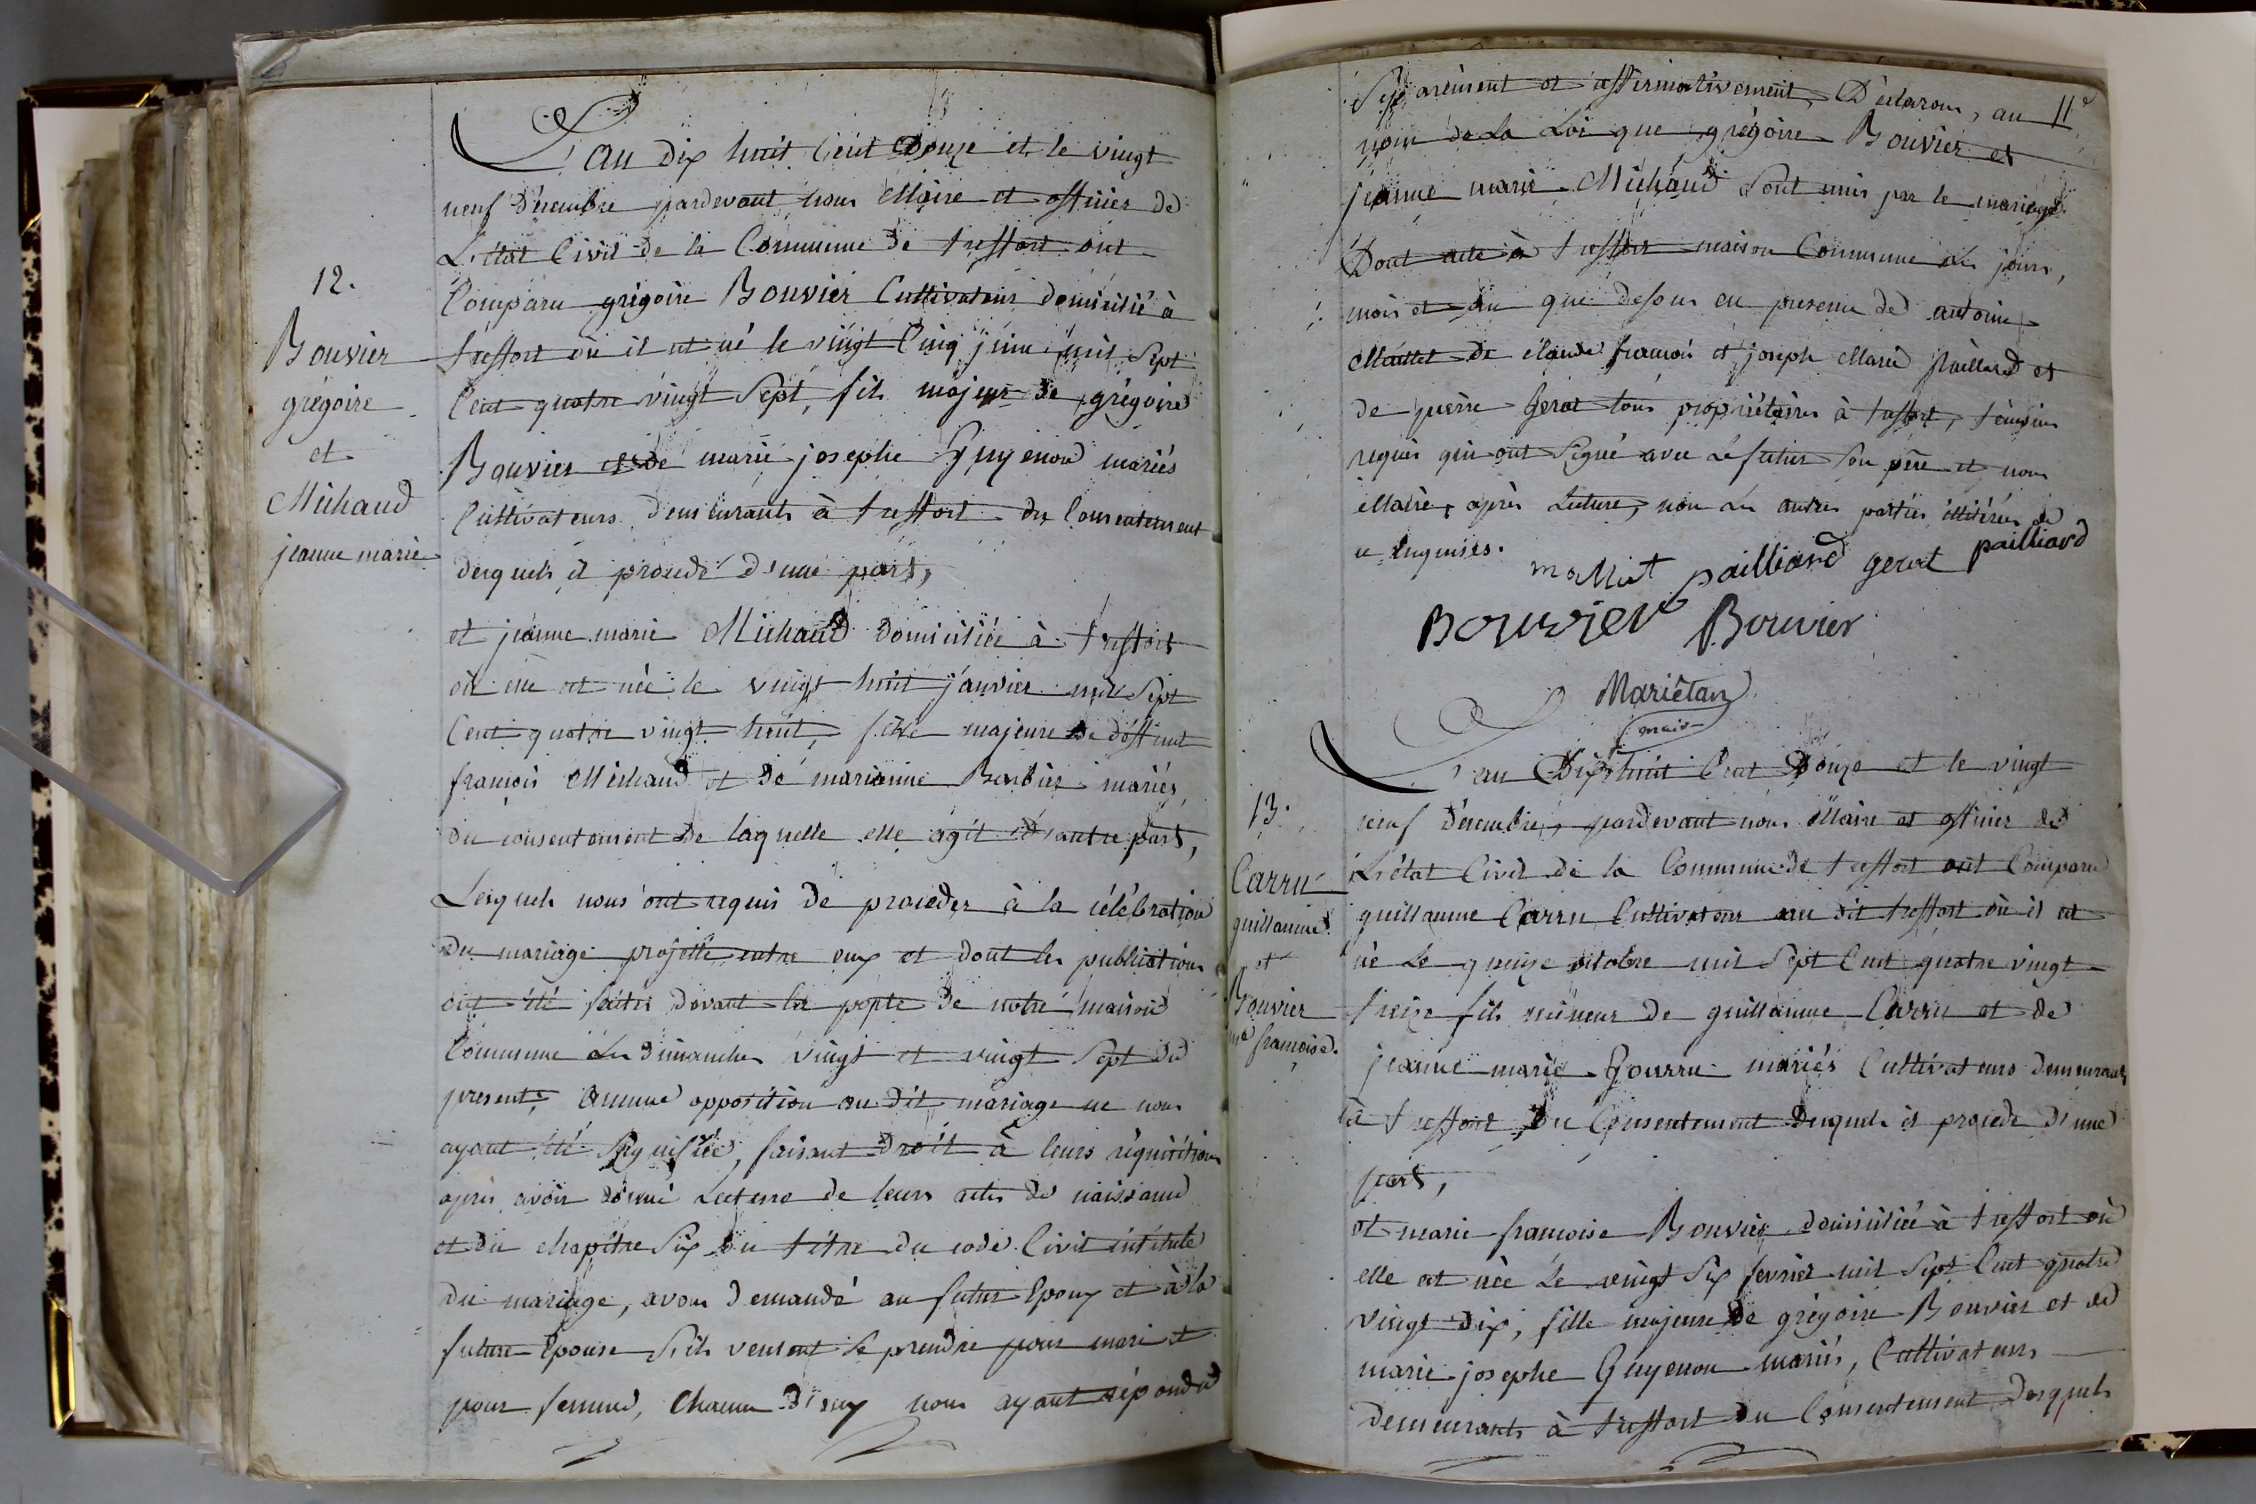 12.
Bouvier
grégoire
et
Michaud
jeanne marie
L'an dix huit Cent Douze et le vingt
neuf Décembre pardevant nous Maire et officier de
L'état Civil de la Commune de treffort ont
Comparu grégoire Bouvier Cultivateur domicilié à
treffort où il est né le vingt Cinq juin mil Sept
Cent quatre vingt Sept, fils majeur de grégoire
Bouvier et de marie josephe Guyenon mariés
Cultivateurs demeurants à treffort du Consentement
desquels il procede d'une part,
et jeanne marie Michaud domiciliée à treffort
où elle est née le vingt huit janvier mil Sept
Cent quatre vingt huit, fille majeure de deffunt
françois Michaud et de marianne Barbier mariés
du consentement de laquelle elle agit d'autre part,
Lesquels nous ont requis de proceder à la célébration
du mariage projetté entre eux et dont les publications
ont été faites devant la porte de notre maison
Commune les dimanches vingt et vingt Sept du
present; Aucune opposition au dit mariage ne nous
ayant été Signifiée, faisant Droit à leurs réquisitions
après avoir donné Lecture de leurs actes de naissance
et du chapitre Six du titre du code Civil intitulé
du mariage, avons demandé au futur Epoux et à la
future Epouse S'ils veulent Se prendre pour mari et
pour femme, Chacun d'eux nous ayant répondu
11e
Séparément et affirmativement, Déclarons, au
nom de La Loi que grégoire Bouvier et
jeanne marie Michaud Sont unis par le mariage
Dont acte à treffort maison Commune les jours,
mois et an que dessus en presence de antoine
Maillet de claude françois et joseph Marie paillard et
de pierre Gerat tous propriétaires à treffort, témoins
requis qui ont Signé avec Le futur Son père et nous
Maire, après Lecture, non Les autres parties illitérées de
ce enquises.
mallet pailliard gerat pailliard
Bouvier Bouvier
Mariétan
maire
13.
Carru
guillaume
et
Bouvier
me françoise.
L'an Dix huit Cent Douze et le vingt
neuf Décembre, pardevant nous Maire et officier de
L'état Civil de la Commune de treffort ont Comparu
guillaume Carru Cultivateur au dit treffort où il est
né Le quinze octobre mil Sept Cent quatre vingt
treize fils mineur de guillaume Carru et de
jeanne marie Gourru mariés Cultivateurs demeurants
à treffort du Consentement desquels il procede d'une
part,
et marie françoise Bouvier domiciliée à treffort où
elle est née Le vingt Six fevrier mil Sept Cent quatre
vingt dix, fille majeure de grégoire Bouvier et de
marie josephe Guyenon mariés, Cultivateurs
demeurants à treffort du Consentement desquels